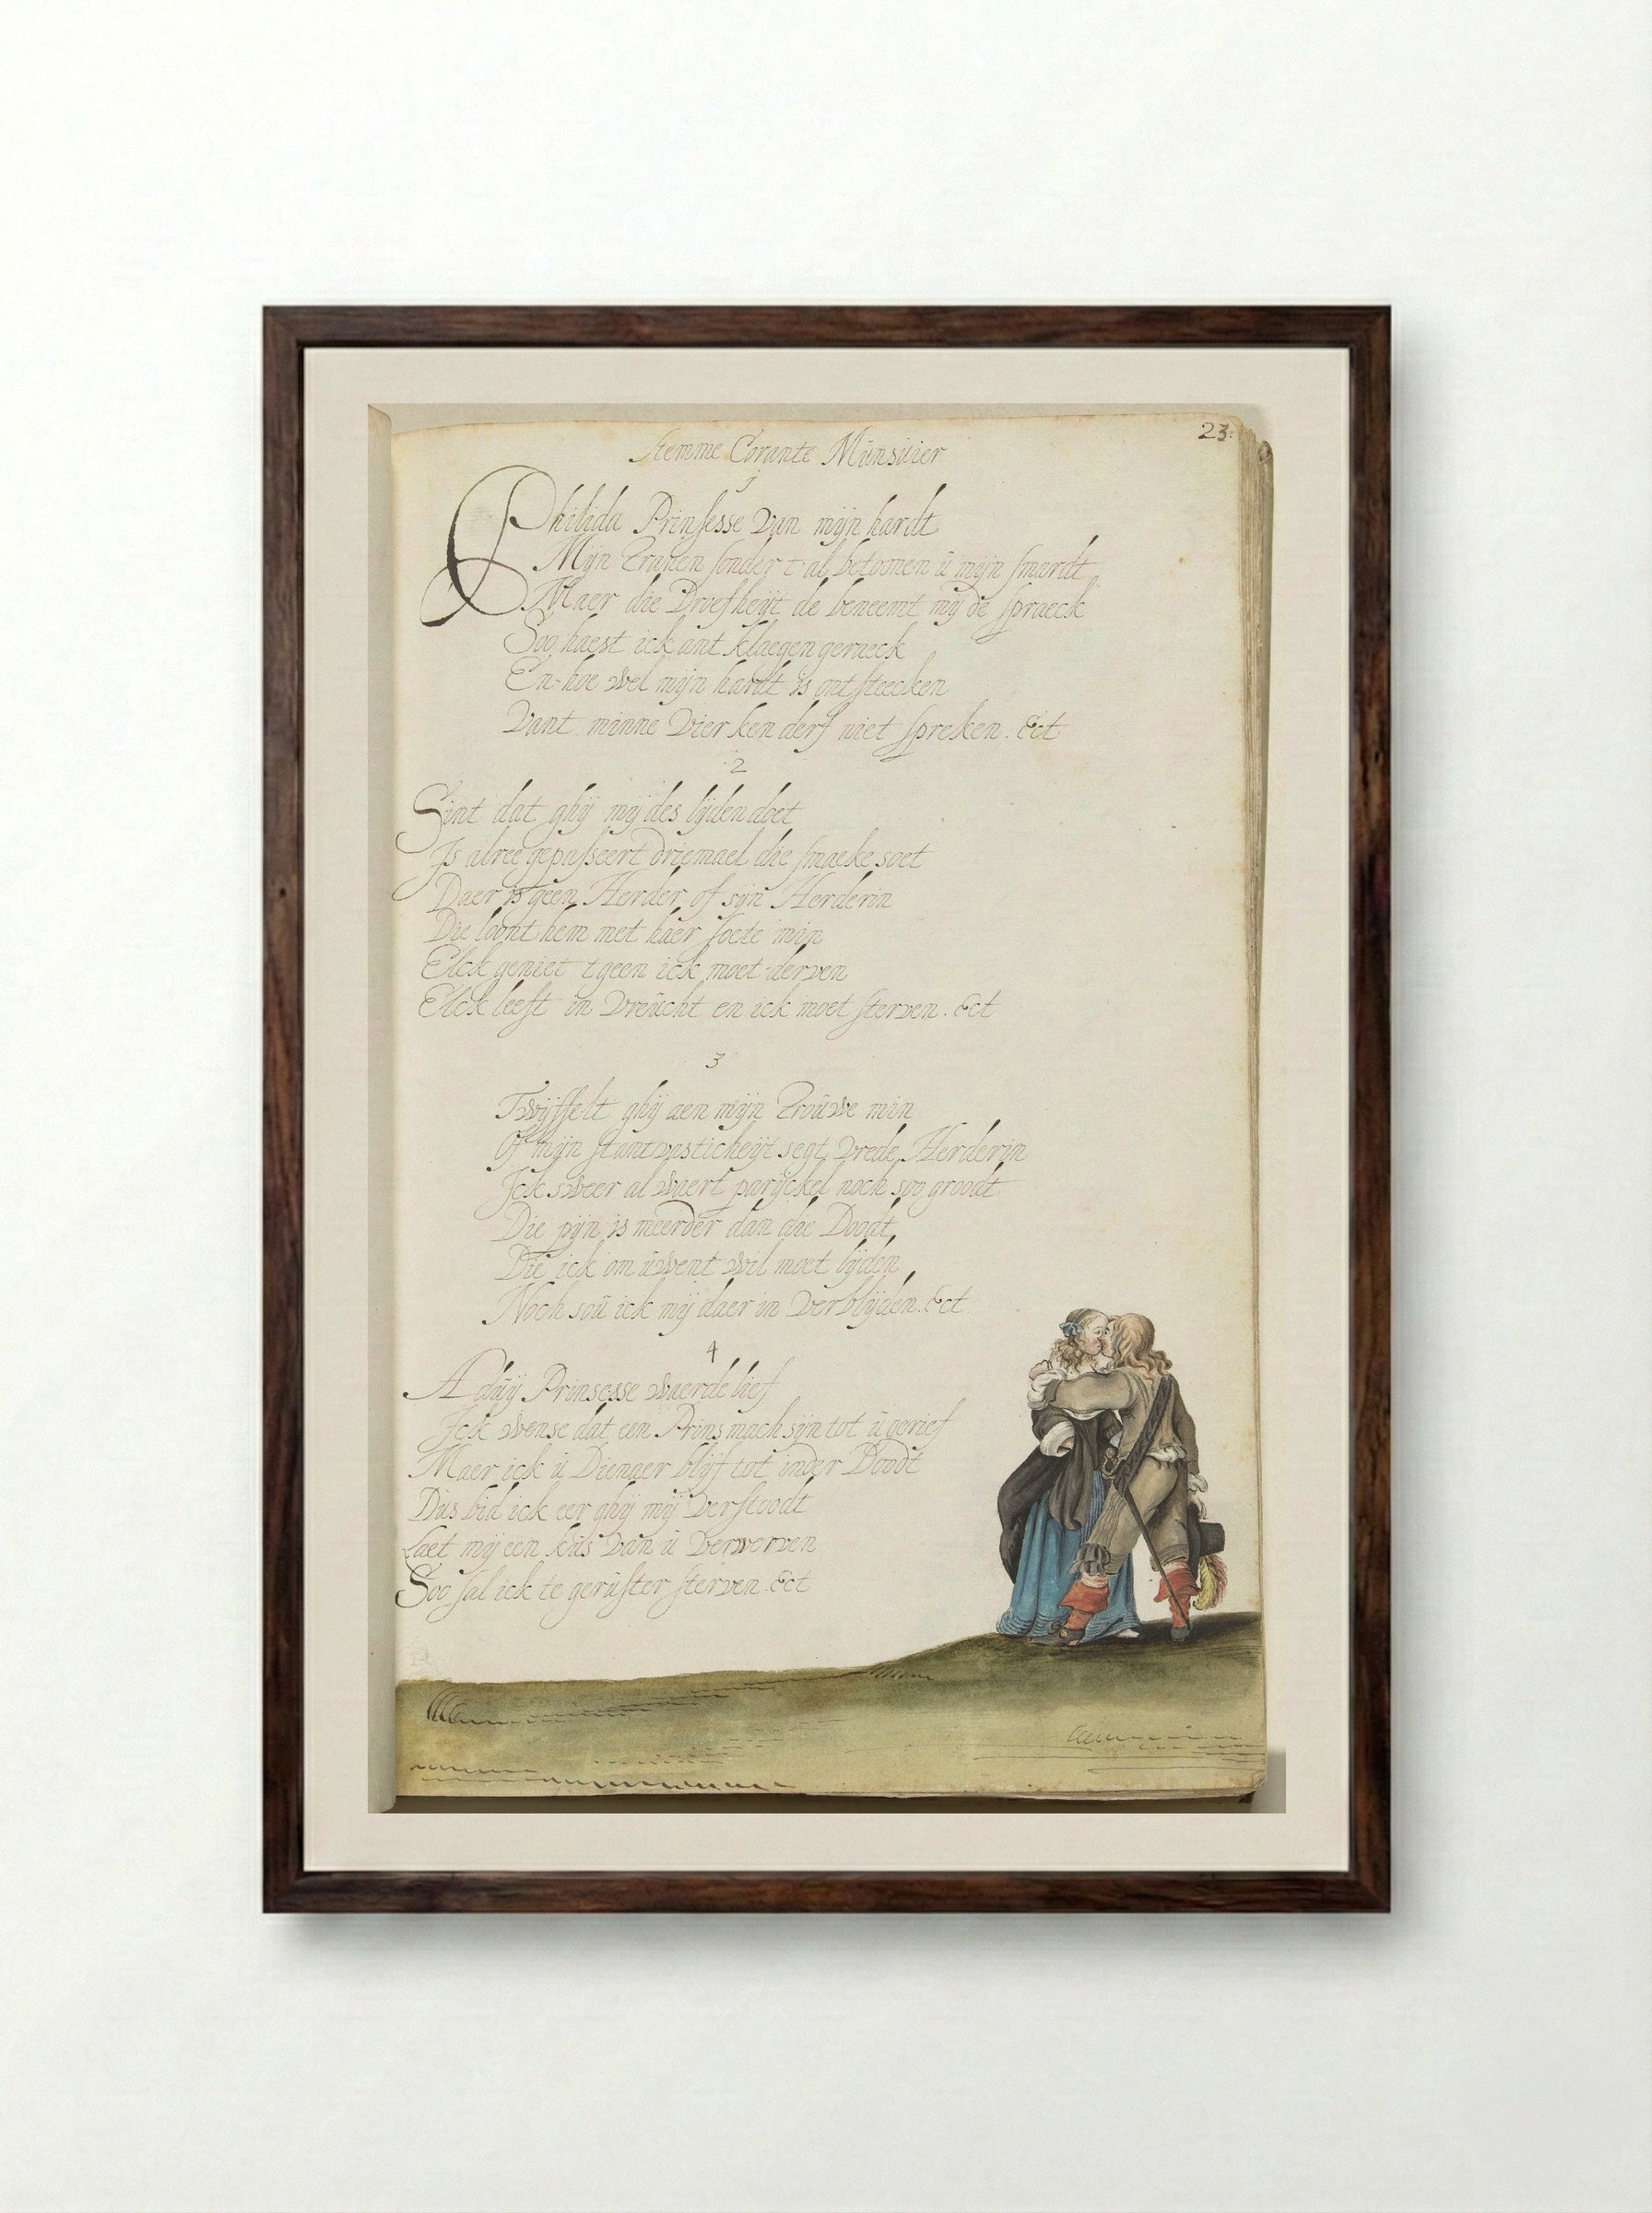 23.
Stemme Corante Munsuier
1
Philida Prinsesse van mijn hardt
Mijn Tranen sonder tal betoonen ŭ mijn smardt
Maer die Droefheijt de beneemt mij de spraeck
Soo haest ick ant klaegen geraeck
En hoe wel mijn hardt is ontsteecken
Vant minne Vier ken derf niet spreken. &ct
2
Sint dat ghij mij des lijden doet
Is alree gepasseert driemael die smaeke soet
Daer is geen Herder of sijn Herderin
Die loont hem met haer soete min
Elck geniet tgeen ick moet derven
Elck leeft in vreŭcht en ick moet sterven. &ct
3
Twijffelt ghij aen mijn Troŭwe min
Of mijn stantvasticheijt segt vrede Herderin
Ick sweer al waert parijckel noch soo groodt
Die pijn is meerder dan die Doodt
Die ick om ŭwent wil moet lijden
Noch soŭ ick mij daer in verblijden. &ct
4
Adŭij Prinsesse waerde lief
Ick wense dat een Prins mach sijn tot ŭ gerief
Maer ick ŭ Dienaer blijf tot inder Doodt
Dŭs bid ick eer ghij mij verstoodt
Laet mij een kŭs van ŭ verwerven
Soo sal ick te gerŭster sterven. &ct